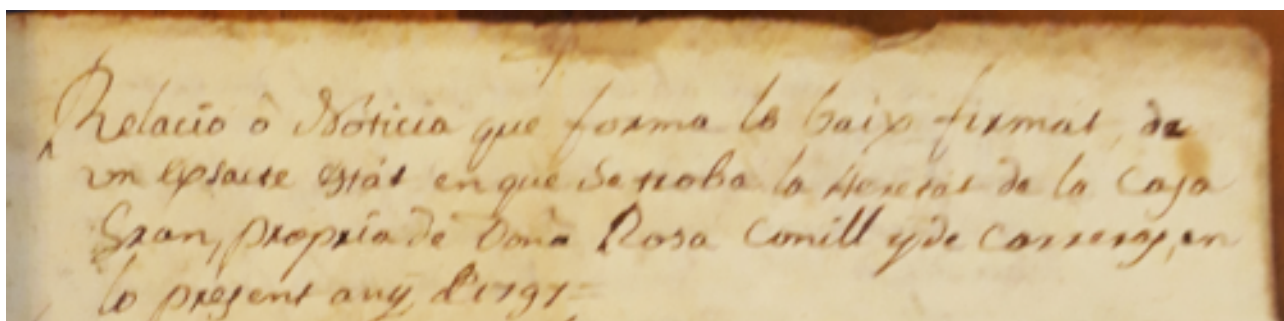 Relacio ò Noticia que forma lo baix firmat, de
un exsacte estat en que se troba la Heretat de la Casa
Gran, propria de Dona Rosa Conill y de Carreras, en
lo present any d 1797=